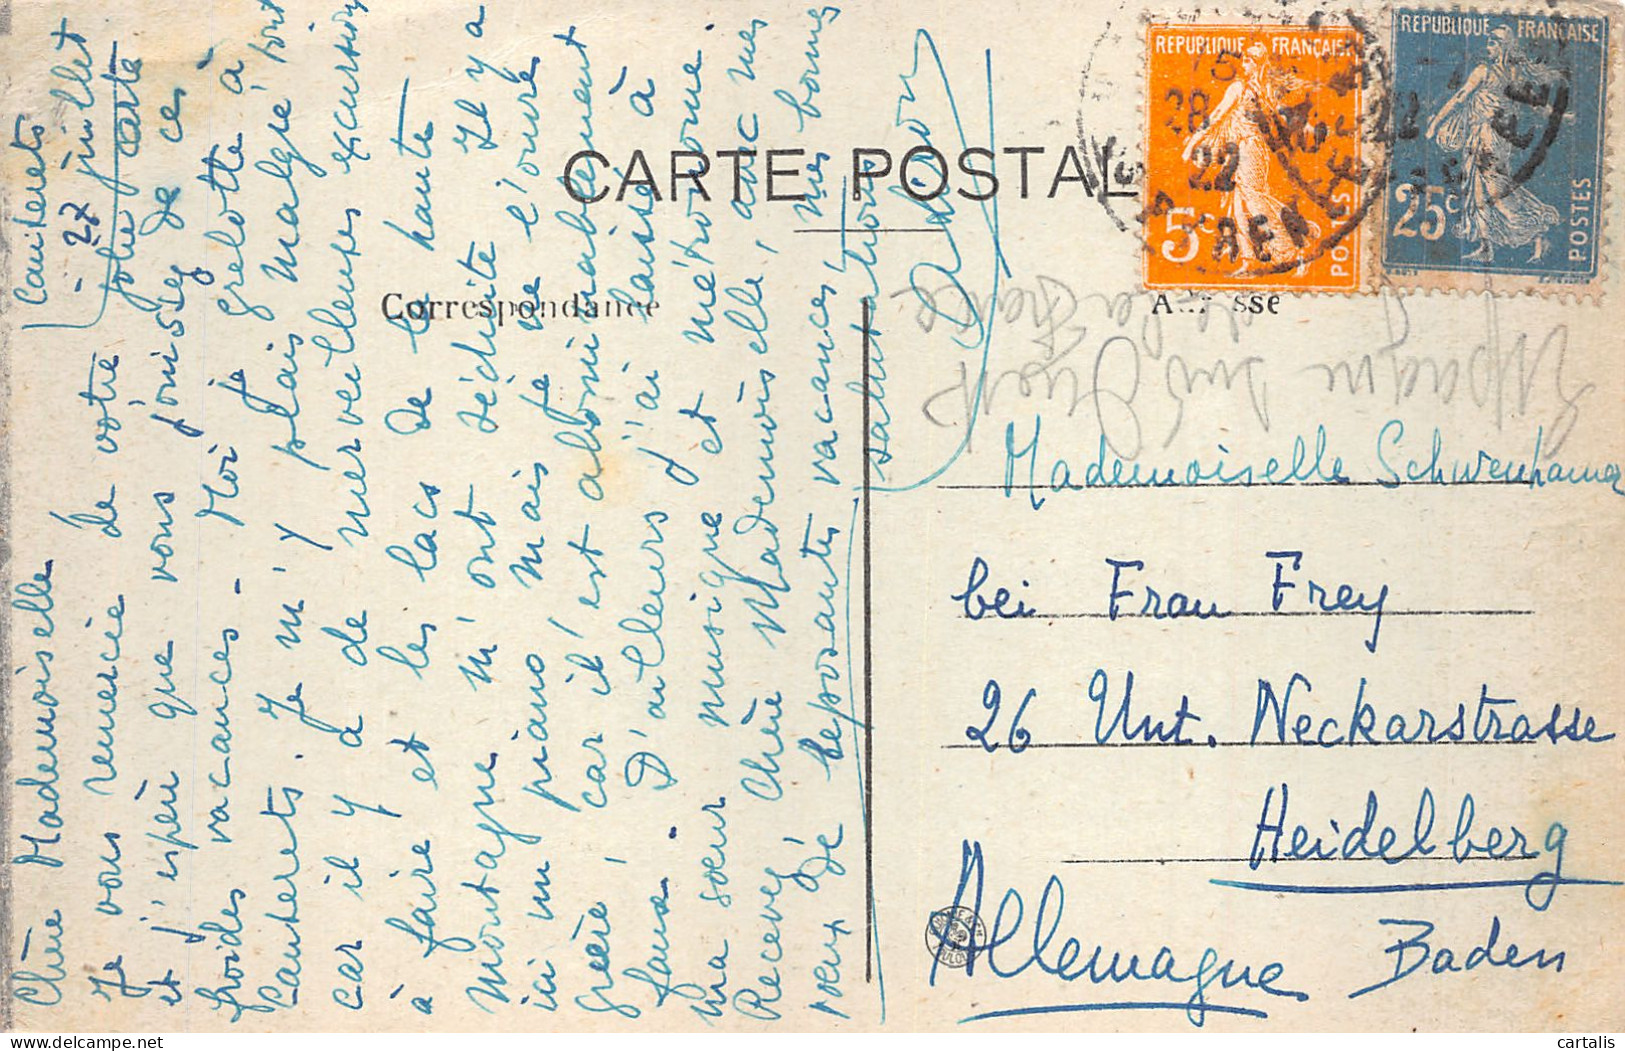 CARTE POSTALE
Correspondance
REPUBLIQUE FRANÇAISE
5c
POSTES
REPUBLIQUE FRANÇAISE
25c
POSTES
28
22
Cauterets
27 juillet
Chère Mademoiselle
Je vous remercie de votre jolie carte
et j'espère que vous jouissez de ces
froides vacances - Moi je grelotte à
Cauterets. Je m'y plais malgré tout
car il y a de merveilleuses excursions
à faire et les lacs de la haute
montagne m'ont séduite. Il y a
ici un piano mais je ne l'ouvre
guère, car il est abominablement
faux. D'ailleurs j'ai laissé à
ma soeur musique et métronome.
Recevez, Chère Mademoiselle, avec mes
voeux de reposantes vacances, mes bonnes
salutations
Espagne
Sud Ouest
de la France
Mademoiselle Schwenhamer
bei Frau Frey
26 Unt. Neckarstrasse
Heidelberg
Baden
Allemagne
cartalis
www.delcampe.net